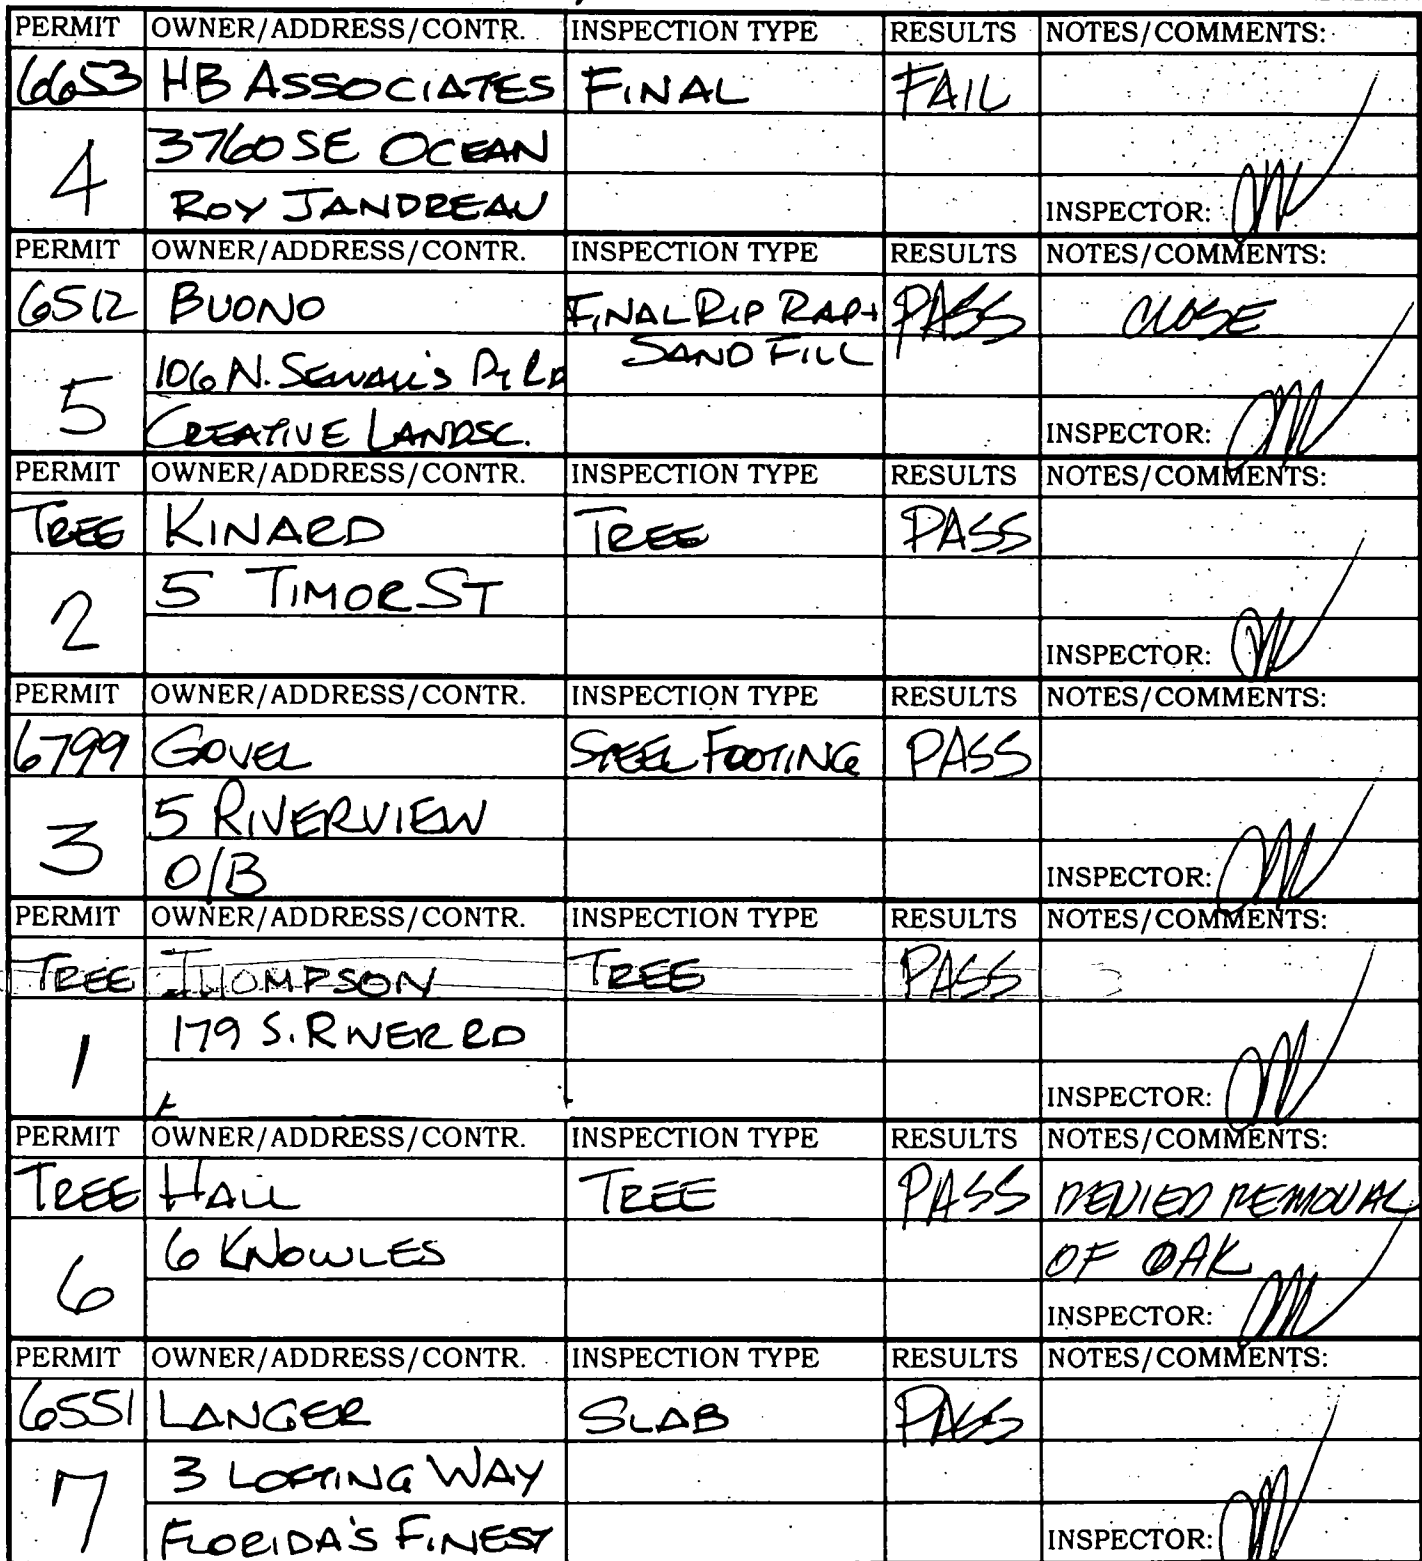 PERMIT OWNER/ADDRESS/CONTR. INSPECTION TYPE RESULTS NOTES/COMMENTS:
6653 HB ASSOCIATES FINAL FAIL
4 3760 SE OCEAN
ROY JANDREAU INSPECTOR:
PERMIT OWNER/ADDRESS/CONTR. INSPECTION TYPE RESULTS NOTES/COMMENTS:
6512 BUONO FINAL RIP RAP+ PASS CLOSE
SAND FILL
5 106 N. SEWALL'S PT RD
CREATIVE LANDSC. INSPECTOR:
PERMIT OWNER/ADDRESS/CONTR. INSPECTION TYPE RESULTS NOTES/COMMENTS:
TREE KINARD TREE PASS
2 5 TIMOR ST
INSPECTOR:
PERMIT OWNER/ADDRESS/CONTR. INSPECTION TYPE RESULTS NOTES/COMMENTS:
6799 GOVEL STEEL FOOTING PASS
3 5 RIVERVIEW
O/B INSPECTOR:
PERMIT OWNER/ADDRESS/CONTR. INSPECTION TYPE RESULTS NOTES/COMMENTS:
TREE THOMPSON TREE PASS
1 179 S. RIVER RD
INSPECTOR:
PERMIT OWNER/ADDRESS/CONTR. INSPECTION TYPE RESULTS NOTES/COMMENTS:
TREE HALL TREE PASS DENIED REMOVAL
6 6 KNOWLES OF OAK
INSPECTOR:
PERMIT OWNER/ADDRESS/CONTR. INSPECTION TYPE RESULTS NOTES/COMMENTS:
6551 LANGER SLAB PASS
7 3 LOFTING WAY
FLORIDA'S FINEST INSPECTOR: